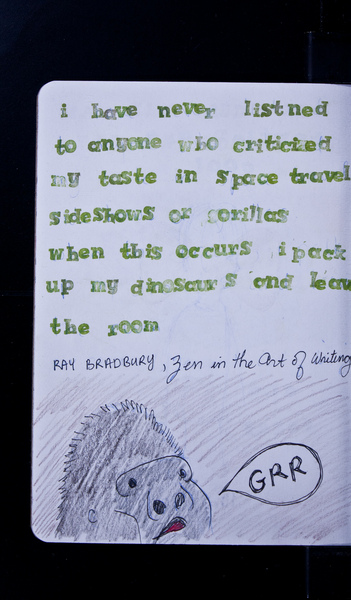 i have never listned
to anyone who criticized
my taste in space travel
sideshows or gorillas
when this occurs i pack
up my dinosaurs and leav
the room
RAY BRADBURY, Zen in the Art of Writing
GRR